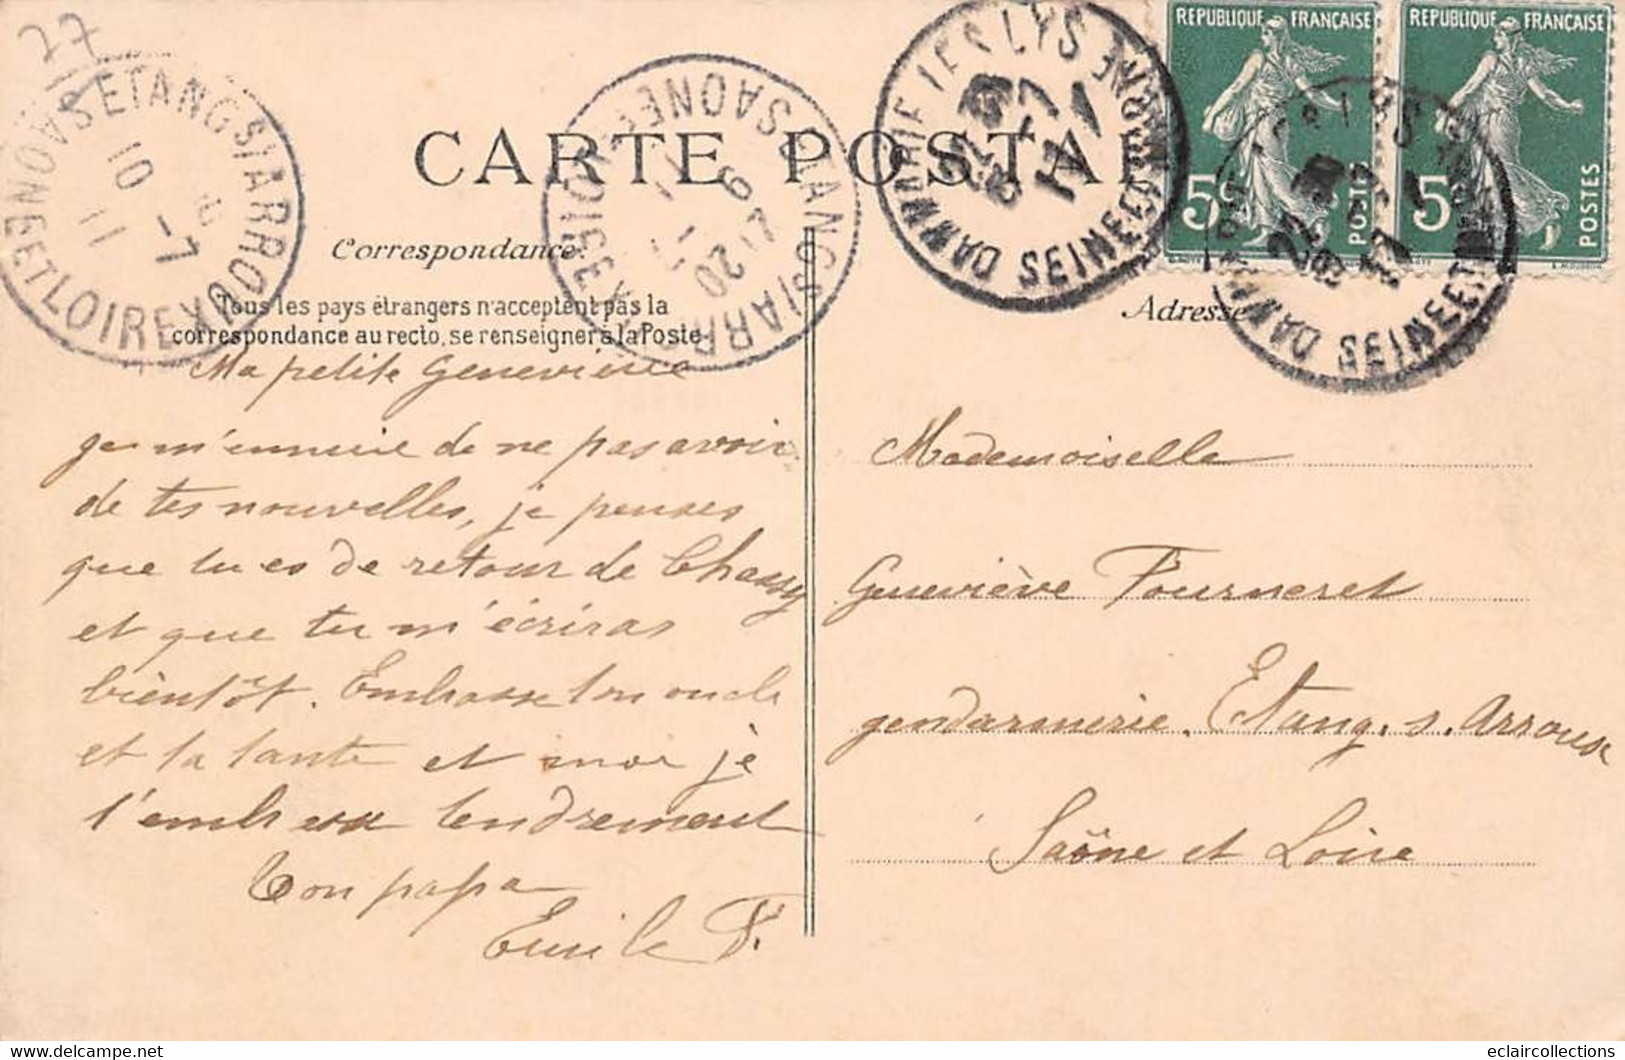 27
ETANG S/ ARROUX
SAONE ET LOIRE
10
-7
11
ETANG S/ ARROUX
SAONE
9
20
DAMMARIE LES LYS
SEINE ET MARNE
REPUBLIQUE FRANÇAISE
5c
POSTES
REPUBLIQUE FRANÇAISE
5c
POSTES
CARTE POSTALE
Correspondance.
Adresse
Tous les pays étrangers n'acceptent pas la
correspondance au recto, se renseigner à la Poste
Ma petite Geneviève
je m'ennuie de ne pas avoir
de tes nouvelles, je penses
que tu es de retour de Chassy
et que tu m'écriras
bientôt. Embrasse ton oncle
et ta tante et moi je
t'embrasse tendrement
Ton papa
Emile F.
Mademoiselle
Geneviève Fourneret
gendarmerie. Etang. s. Arroux
Saône et Loire
eclaircollections